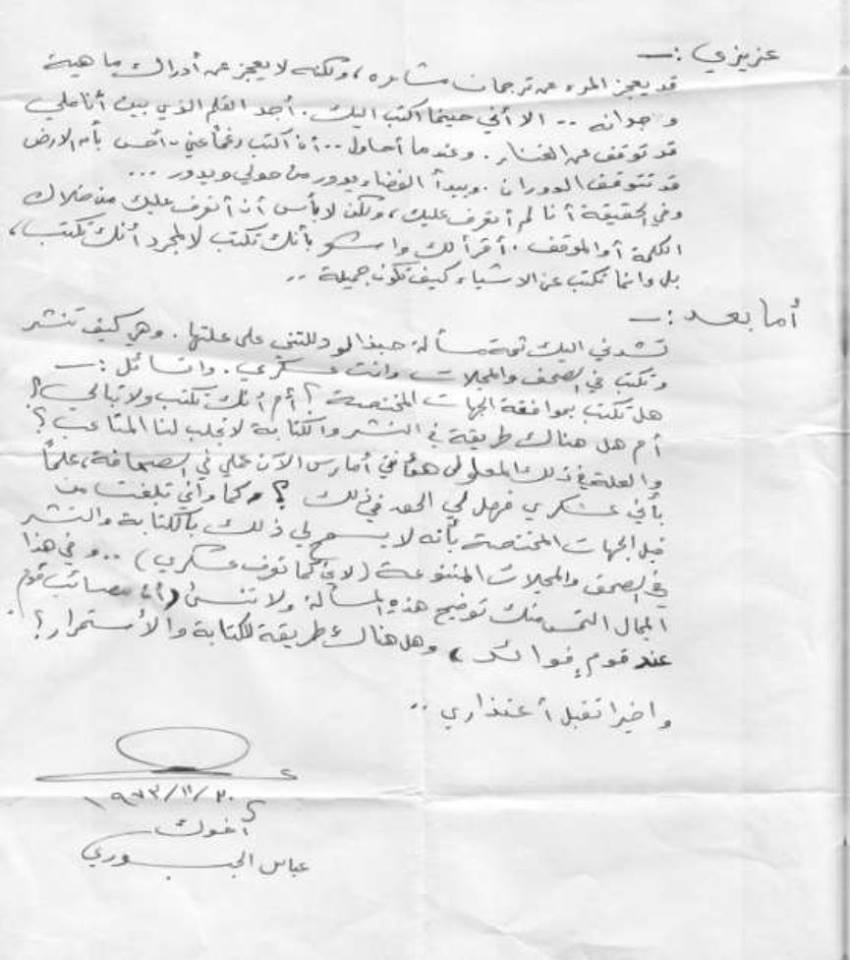 عزيزي :ــ
قد يعجز المرء عن ترجمان مشاعره ، ولكنه لا يعجز عن أدراك ماهية
وجدانه .. الا أني حينما اكتب اليك . أجد القلم الذي بين أناملي
قد توقف عن العناء . وعندما أحاول .. أن اكتب رغماً عني .. أحس بأن الارض
قد تتوقف الدوران . ويبدأ الفضاء يدور من حولي ويدور ...
وفي الحقيقة أنا لم أتعرف عليك ، ولكن لا بأس أن أتعرف عليك من خلال
الكلمة أو الموقف . أقرأ لك واشعر بأنك تكتب لا لمجرد أنك تكتب ،
بل وانما تكتب عن الاشياء كيف تكون جميلة ..
أما بعد :ــ
تشدني اليك ثمة مسألة حبذا لو على علتها . وهي كيف تنشر
وتكتب في الصحف والمجلات وانت عسكري . واتسائل :ــ
هل تكتب بموافقة الجهات المختصة ؟ أم أنك تكتب ولا تبالي ؟
أم هل هناك طريقة في النشر والكتابة لا تجلب لنا المتاعب ؟
والعلة في ذلك المعلول هو أنني أمارس الآن عملي في الصحافة ، علماً
بأني عسكري فهل لي الحق في ذلك ؟ . كما وأني تبلغت من
قبل الجهات المختصة بأنه لا يسمح لي ذلك بالكتابة والنشر
في الصحف والمجلات المتنوعة ( لأني كما تعرف عسكري ) .. وفي هذا
المجال التمس منك توضيح هذه المسألة ولا تنسى ( أن مصائب قوم
عند قوم فوائد ) وهل هناك طريقة للكتابة والأستمرار ؟
واخيرا تقبل أعتذاري ..
١٩٧٣/١١/٢٠
أخوك
عباس الجبوري